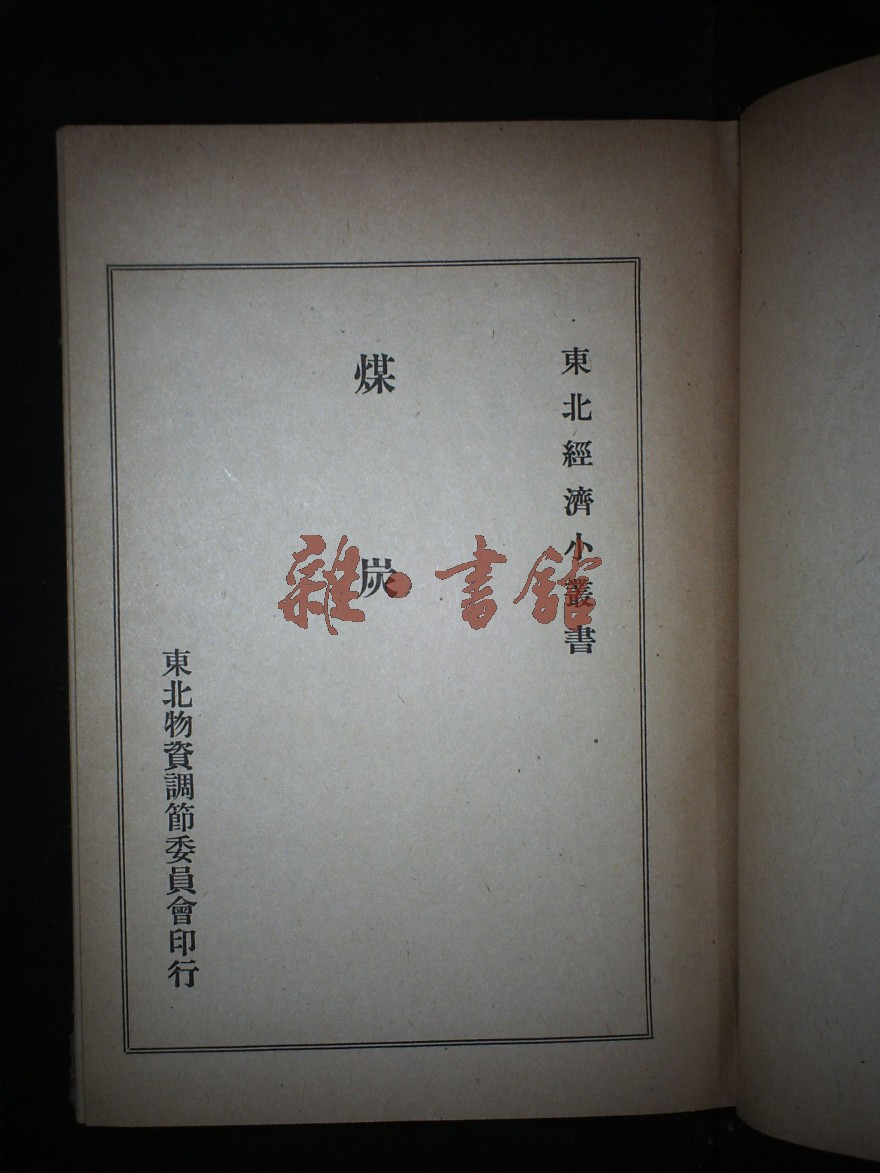 東北經濟小叢書
煤炭
東北物資調節委員會印行
雜·書館